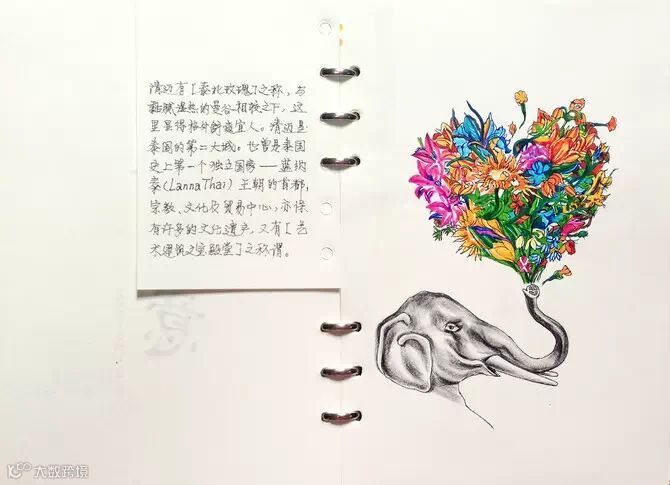 清迈有[泰北玫瑰]之称，与
黏腻湿热的曼谷相较之下，这
里显得格外舒爽宜人。清迈是
泰国的第二大城。也曾是泰国
史上第一个独立国家——蓝纳
泰(LannaThai)王朝的首都，
宗教、文化及贸易中心，亦保
有许多的文化遗产，又有[艺
术建筑之宝殿堂]之称谓。
大数跨境